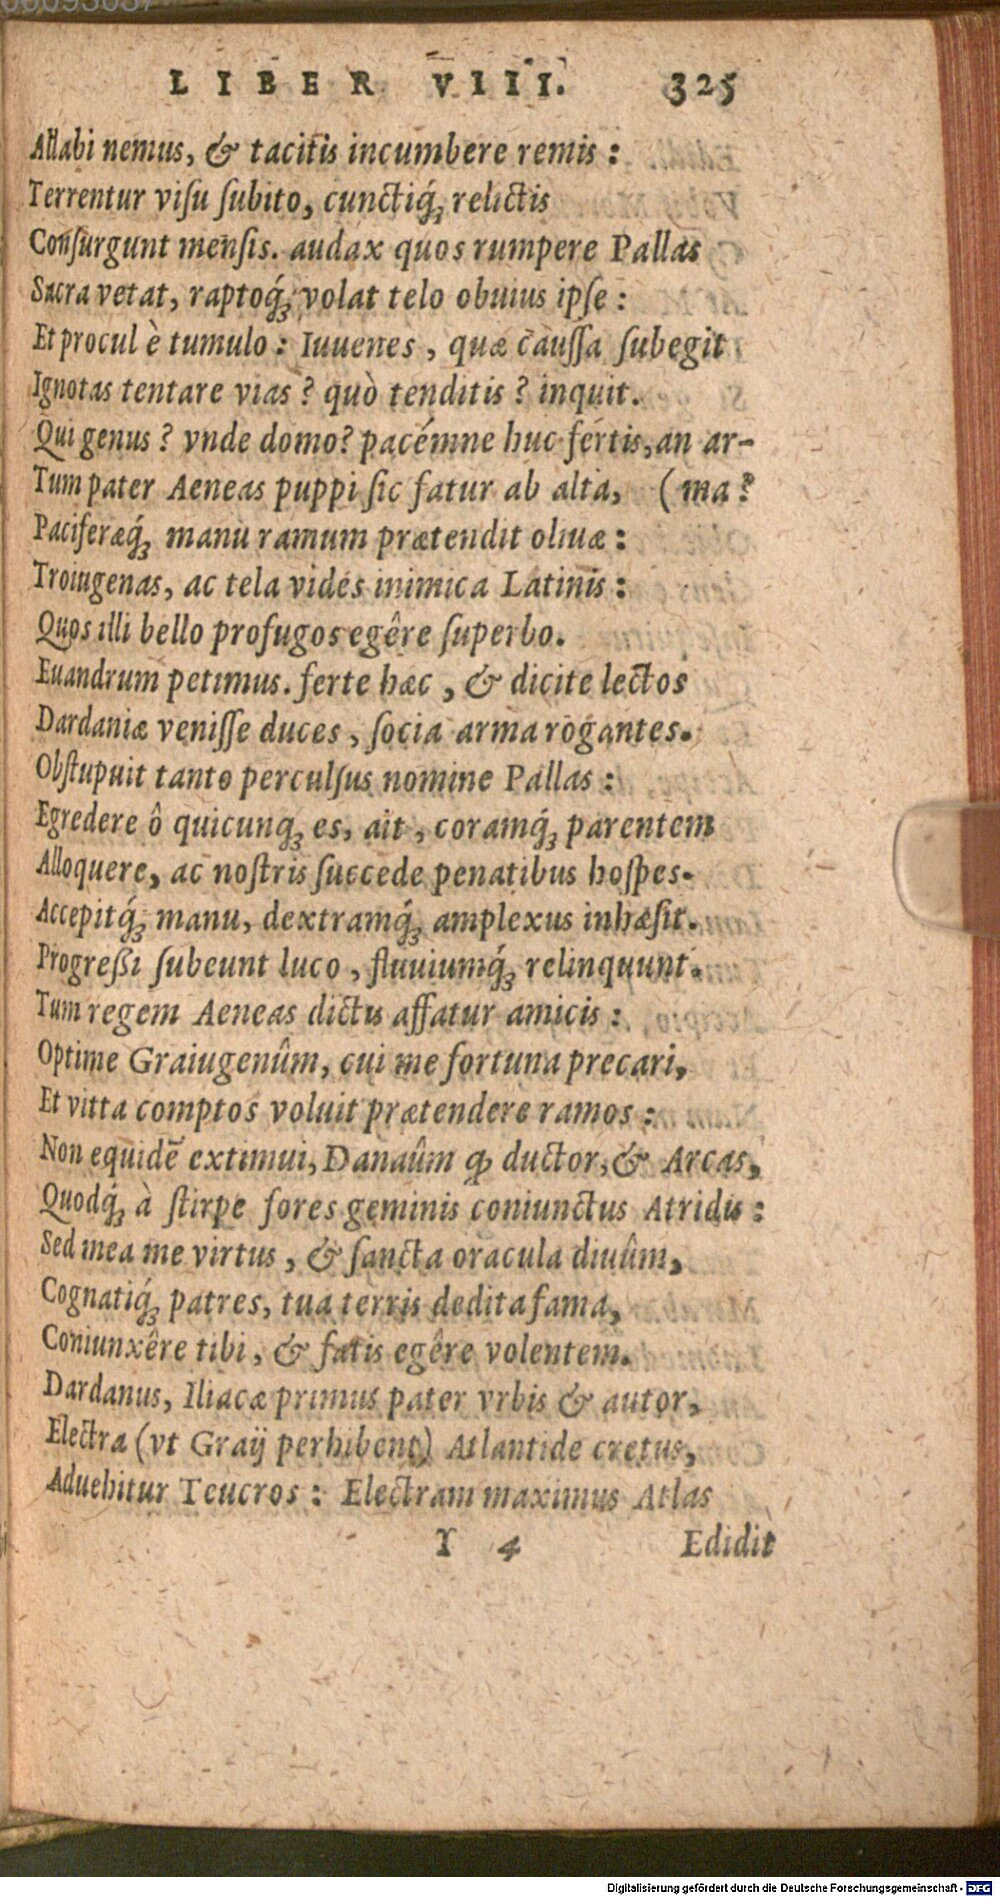 LIBER VIII. 325
Allabi nemus, & tacitis incumbere remis :
Terrentur visu subito, cunctiq́; relictis
Consurgunt mensis. audax quos rumpere Pallas
Sacra vetat, raptoq́; volat telo obuius ipse :
Et procul è tumulo : Iuuenes , quæ caussa subegit
Ignotas tentare vias ? quò tenditis ? inquit.
Qui genus ? vnde domo? pacémne huc fertis, an ar-
Tum pater Aeneas puppi sic fatur ab alta, ( ma ?
Paciferæq́; manu ramum prætendit oliuæ :
Troiugenas, ac tela vides inimica Latinis :
Quos illi bello profugos egêre superbo.
Euandrum petimus. ferte hæc , & dicite lectos
Dardaniæ venisse duces , socia arma rogantes.
Obstupuit tanto perculsus nomine Pallas :
Egredere ô quicunq; es, ait , coramq́; parentem
Alloquere, ac nostris succede penatibus hospes.
Accepitq́; manu, dextramq́; amplexus inhæsit.
Progressi subeunt luco , fluuiumq́; relinquunt.
Tum regem Aeneas dictis affatur amicis :
Optime Graiugenûm, cui me fortuna precari,
Et vitta comptos voluit prætendere ramos :
Non equidē extimui, Danaûm ꝙ ductor, & Arcas,
Quodq́; à stirpe fores geminis coniunctus Atridis :
Sed mea me virtus , & sancta oracula diuûm,
Cognatiq́; patres, tua terris dedita fama,
Coniunxêre tibi , & fatis egêre volentem.
Dardanus, Iliacæ primus pater vrbis & autor,
Electra (vt Graij perhibent) Atlantide cretus,
Aduehitur Teucros : Electram maximus Atlas
Y 4 Edidit
Digitalisierung gefördert durch die Deutsche Forschungsgemeinschaft - DFG